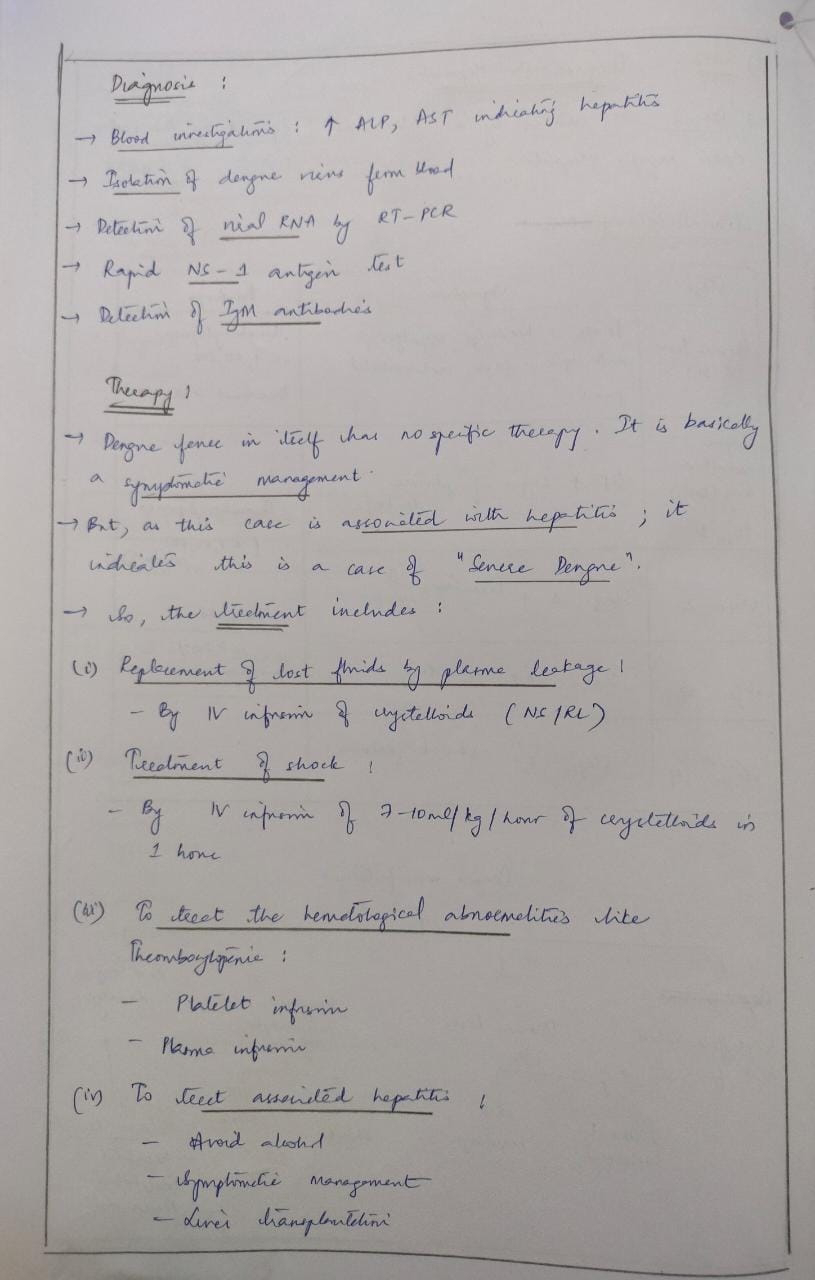 Diagnosis :
→ Blood investigations : ↑ ALP, AST indicating hepatitis
→ Isolation of dengue virus from blood
→ Detection of viral RNA by RT-PCR
→ Rapid NS-1 antigen test
→ Detection of IgM antibodies
Therapy :
→ Dengue fever in itself has no specific therapy. It is basically
a symptomatic management.
→ But, as this case is associated with hepatitis ; it
indicates this is a case of "Severe Dengue".
→ So, the treatment includes :
(i) Replacement of lost fluids by plasma leakage :
- By IV infusion of crystalloids (NS/RL)
(ii) Treatment of shock :
- By IV infusion of 7-10ml/kg/hour of crystalloids in
1 hour
(iii) To treat the hematological abnormalities like
Thrombocytopenia :
- Platelet infusion
- Plasma infusion
(iv) To treat associated hepatitis :
- Avoid alcohol
- Symptomatic management
- Liver transplantation